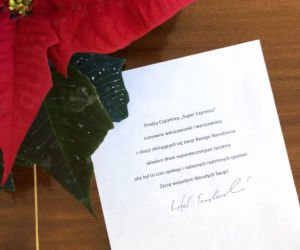 Drodzy Czytelnicy „Super Expressu"
szanowne warszawianki i warszawiacy
z okazji zbliżających się Świąt Bożego Narodzenia
składam Wam najserdeczniejsze życzenia
aby był to czas spokoju i radosnych rodzinnych spotkań.
Życzę wszystkim Wesołych Świąt!